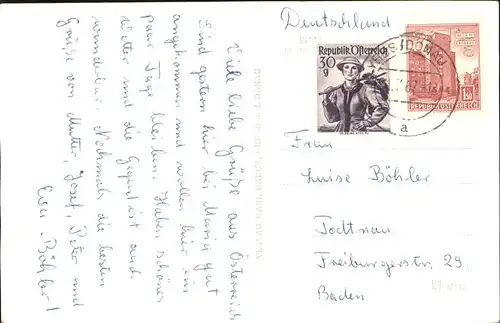 Deutschland
Republik Österreich
30
g
1.50
REPUBLIK ÖSTERREICH
a
Frau
Luise Böhler
Todtnau
Freiburgerstr. 29
Baden
Viele liebe Grüße aus Österreich
Sind gestern hier bei Maria gut
angekommen und wollen hier ein
paar Tage bleiben. Haben schönes
Wetter und die Gegend ist auch
wunderbar. Nochmals die besten
Grüße von Mutter, Josef, Peter und
Eva Böhler!